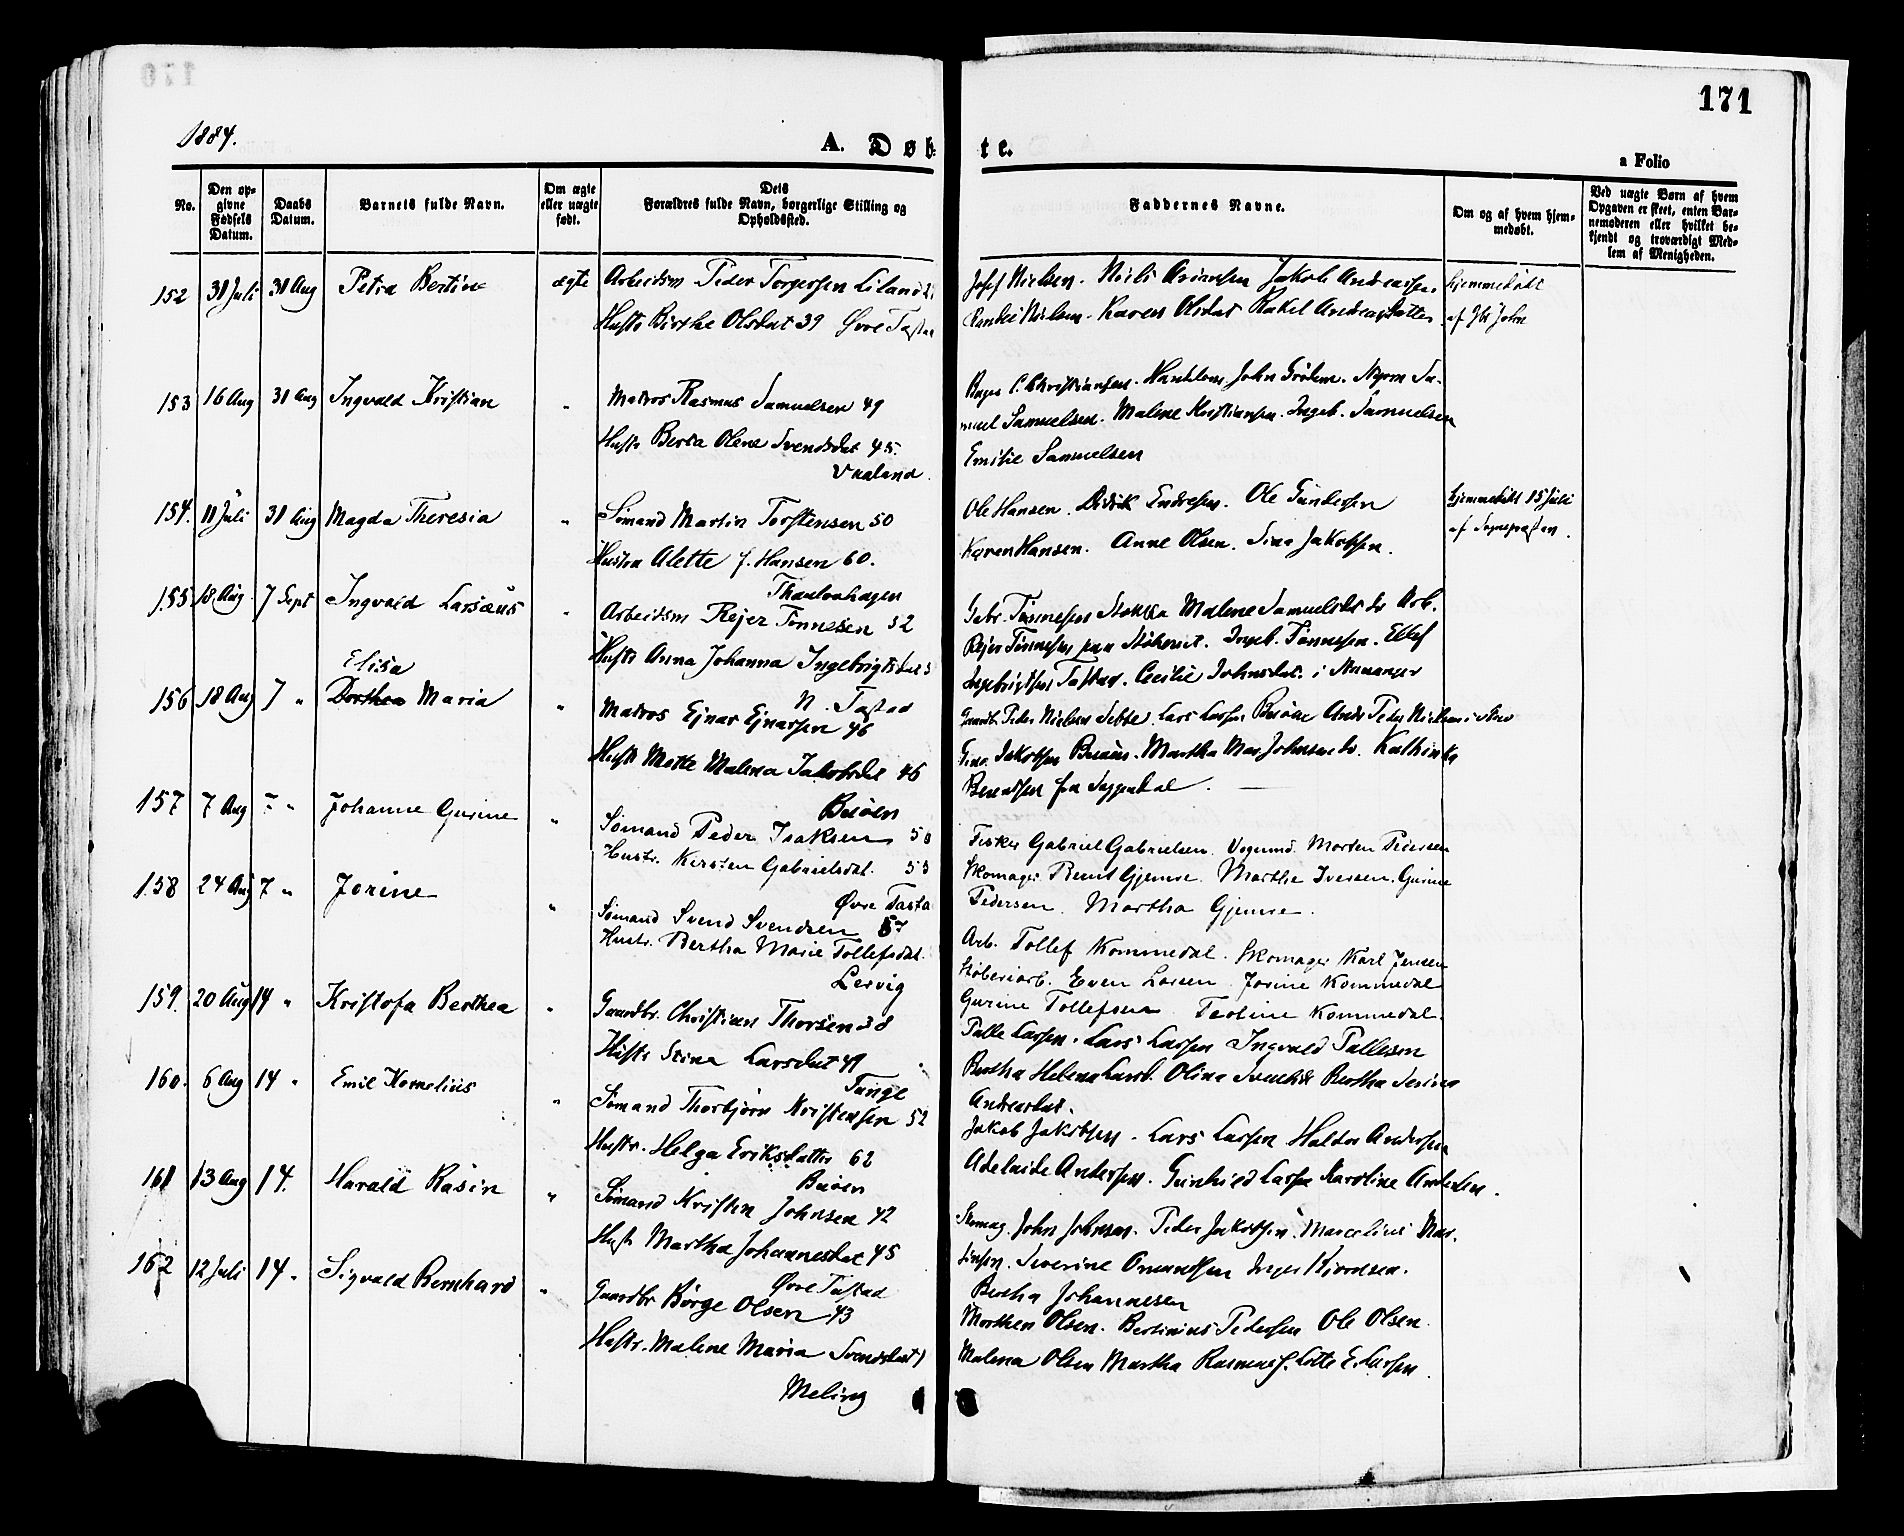 171
1884.
A. Døb-
te.
a Folio
No.
Den op-
givne
Fødsels
Datum.
Daabs
Datum.
Barnets fulde Navn.
Om ægte
eller uægte
født.
Dets
Forældres fulde Navn, borgerlige Stilling og
Opholdssted.
Faddernes Navne.
Om og af hvem hjem-
medøbt.
Ved uægte Børn af hvem
Opgaven er skeet, enten Bar-
nemoderen eller hvilket be-
kjendt og troværdigt Med-
lem af Menigheden.
152 31 Juli 31 Aug Petra Bertine ægte Arbeidsm Peder Torgersen
Hustr Birthe Olsdat 39 Øvre Tastad
Josef Nielsen. Niels Jakob Andreassen.
Nielsen. Karen Olsdat Rakel Andreasdatter
hjemmedøbt
af John
153 16 Aug 31 Aug Ingvald Kristian " Matros Rasmus Samuelsen 49
Hustr Berta Olene Svendsdat 45.
Vaaland.
C. Christiansen. John
muel Samuelsen. Malene Kristiansen. Ingeb. Samuelsen
Emilie Samuelsen
154. 11 Juli 31 Aug Magda Theresia " Sömand Martin Torstensen 50
Hustru Alette f. Hansen 60.
Ole Hansen. Didrik Endresen. Ole Gundersen
Karen Hansen. Anne Olsen. Sina Jakobsen.
hjemmedøbt 15 Juli
af Sognepresten.
155 18 Aug. 7 Sept Ingvald Larsæus " Arbeidsm Rejer Tönnesen 52
Hustr Anna Johanna Ingebrigtsdat
N. Tastad
Tönnesen Malene Samuelsdr Arb.
Rejer Tönnesen paa Ingeb. Tönnesen. Ellef
Ingebrigtsen Tastad. Cecilie Johnsdat. i Stavanger
Elisa
156 18 Aug 7 " Dorthea Maria " Matros Ejnar Ejnarsen 46
Hustr Mette Malena Jakobsdat 46
Buöen
Gaardb. Peder Nielsen Lars Larsen Buöen
Jakobsen Buöen. Martha Mar. Kathinka
Berentsen fra Soggendal.
157 7 Aug 7 " Johanne Gurine " Sömand Peder Isaksen 50
Hustr. Kirsten Gabrielsdat. 53
Øvre Tasta
Fisker Gabriel Gabrielsen. Morten Pedersen
Skomager Bent Gjemre. Marthe Iversen. Gurine
Pedersen. Martha Gjemre.
158 24 Aug 7 " Jorine " Sömand Svend Svendsen 57
Hustr. Bertha Marie Tollefsdat.
Lervig
Arb. Tollef Kommedal. Skomager Karl Jensen
Støberiarb. Even Larsen. Jorine Kommedal
Gurine Tollefsen Kommedal.
159. 20 Aug 14 " Kristofa Berthea " Gaardbr. Christian Thorsen 38
Hustr Stina Larsdat 49
Tunge
Palle Larsen. Lars Larsen Ingvald Pallesen
Bertha Helena Larsd. Olina Bertha Serina
Andreasdat.
160. 6 Aug 14 " Emil Kornelius " Sömand Thorbjörn Kristensen 52
Hustr. Helga Eriksdatter 62
Buöen
Jakob Jakobsen. Lars Larsen Haldor Andersen
Adelaide Andersen. Larsen Karoline Andersen.
161 13 Aug 14. Harald Rasin " Sömand Kristen Johnsen 42
Hustr Martha Johannesdat 45
Øvre Tastad
Skomag. John Johnsen. Peder Jakobsen. Marcelius Mar-
tinsen. Severine Omundsen Inger
Bertha Johannesen
162 12 Juli 14 " Sigvald Bernhard " Gaardbr Börge Olsen 43
Hustr. Malene Maria Svendsdat
Meling
Morthen Olsen. Bertinius Pedersen Ole Olsen.
Malena Olsen Martha Lotte E. Larsen.